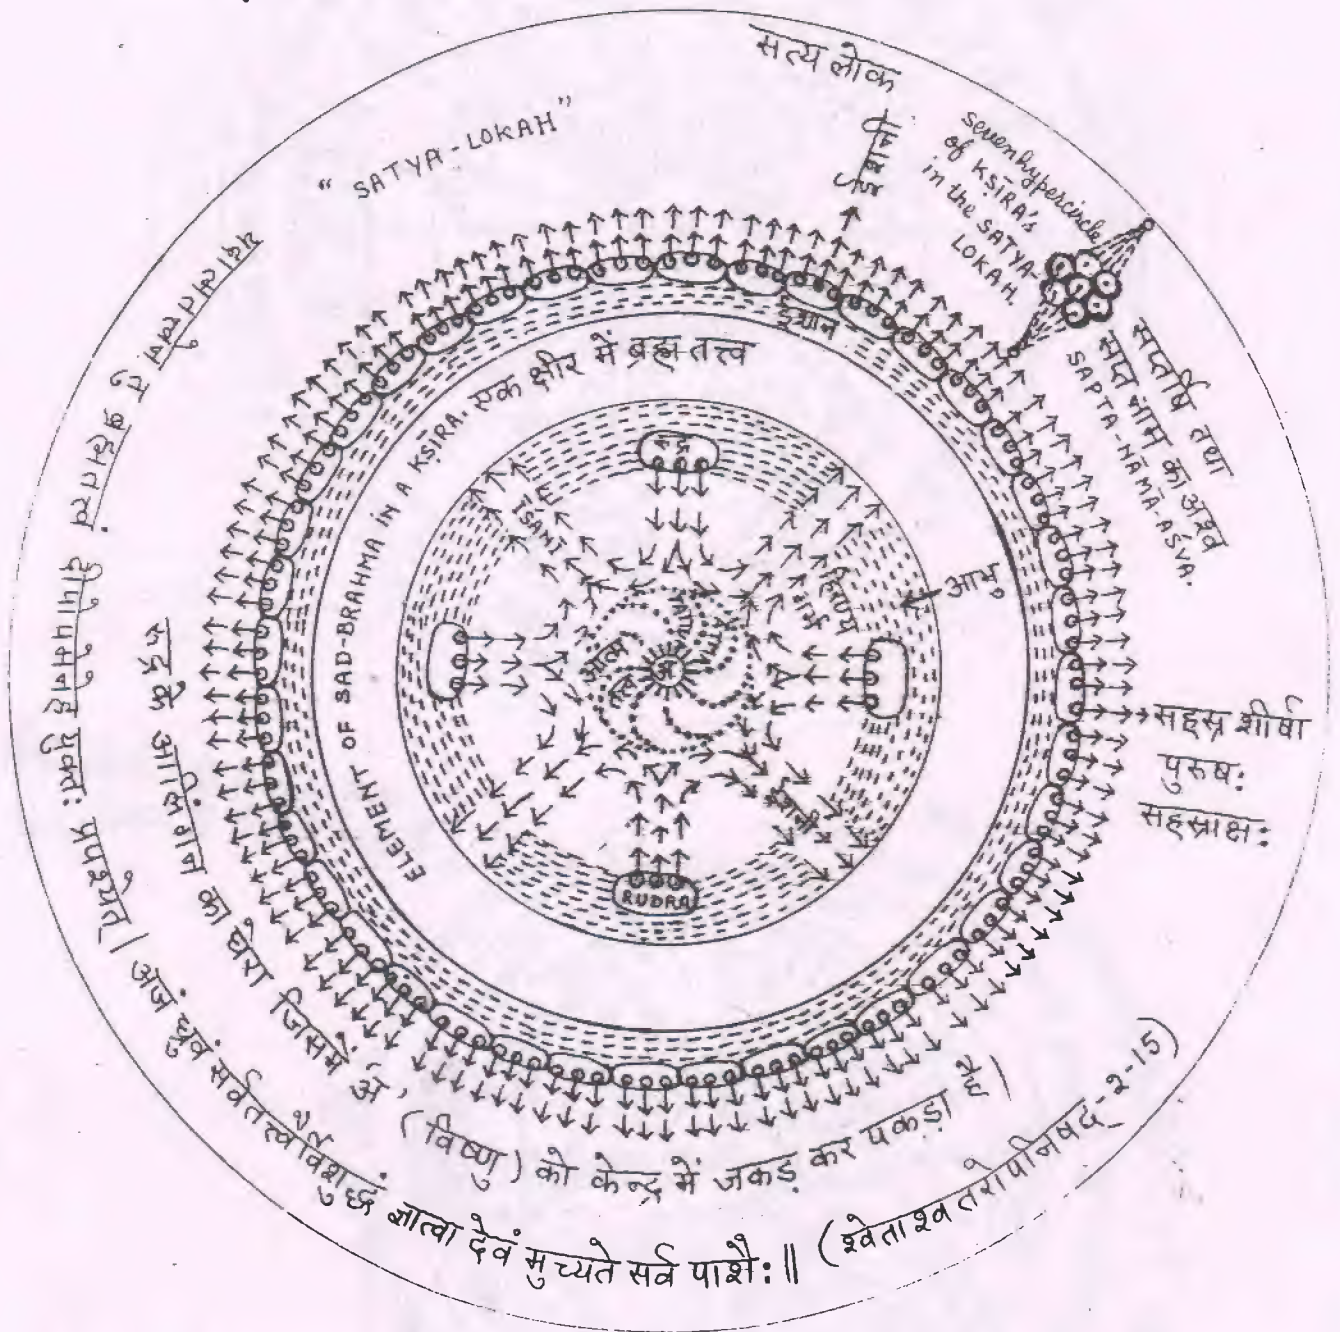 सत्य लोक
"SATYA-LOKAH"
ईशानी
seven hypercircle
of KṢĪRA's
in the SATYA-
LOKAH.
सप्तर्षि तथा
सप्त नाम का अश्व
SAPTA-NĀMĀ-AŚVA.
ईशान
ELEMENT OF SAD-BRAHMA in A KṢĪRA. एक क्षीर में ब्रह्म तत्त्व
रुद्र
ĪŚĀNĪ
हिरण्य
गर्भ
आभु
आत्म
तत्त्व
अ
ईशानी
RUDRA
सहस्र शीर्षा
पुरुषः
सहस्राक्षः
रुद्र के आलिंगन का घेरा जिसमें 'अ' (विष्णु) को केन्द्र में जकड़ कर पकड़ा है|
यदात्मतत्त्वेन तु ब्रह्मतत्त्वं दीपोपमेनेह युक्तः प्रपश्येत्| अजं ध्रुवं सर्वतत्त्वैर्विशुद्धं ज्ञात्वा देवं मुच्यते सर्व पाशैः|| (श्वेताश्वतरोपनिषद-2-15)